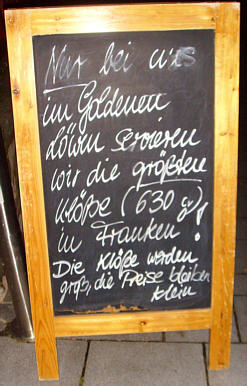 Nur bei uns
im Goldenen
Löwen servieren
wir die größten
Klöße (630 g)
in Franken!
Die Klöße werden
groß, die Preise bleiben
klein